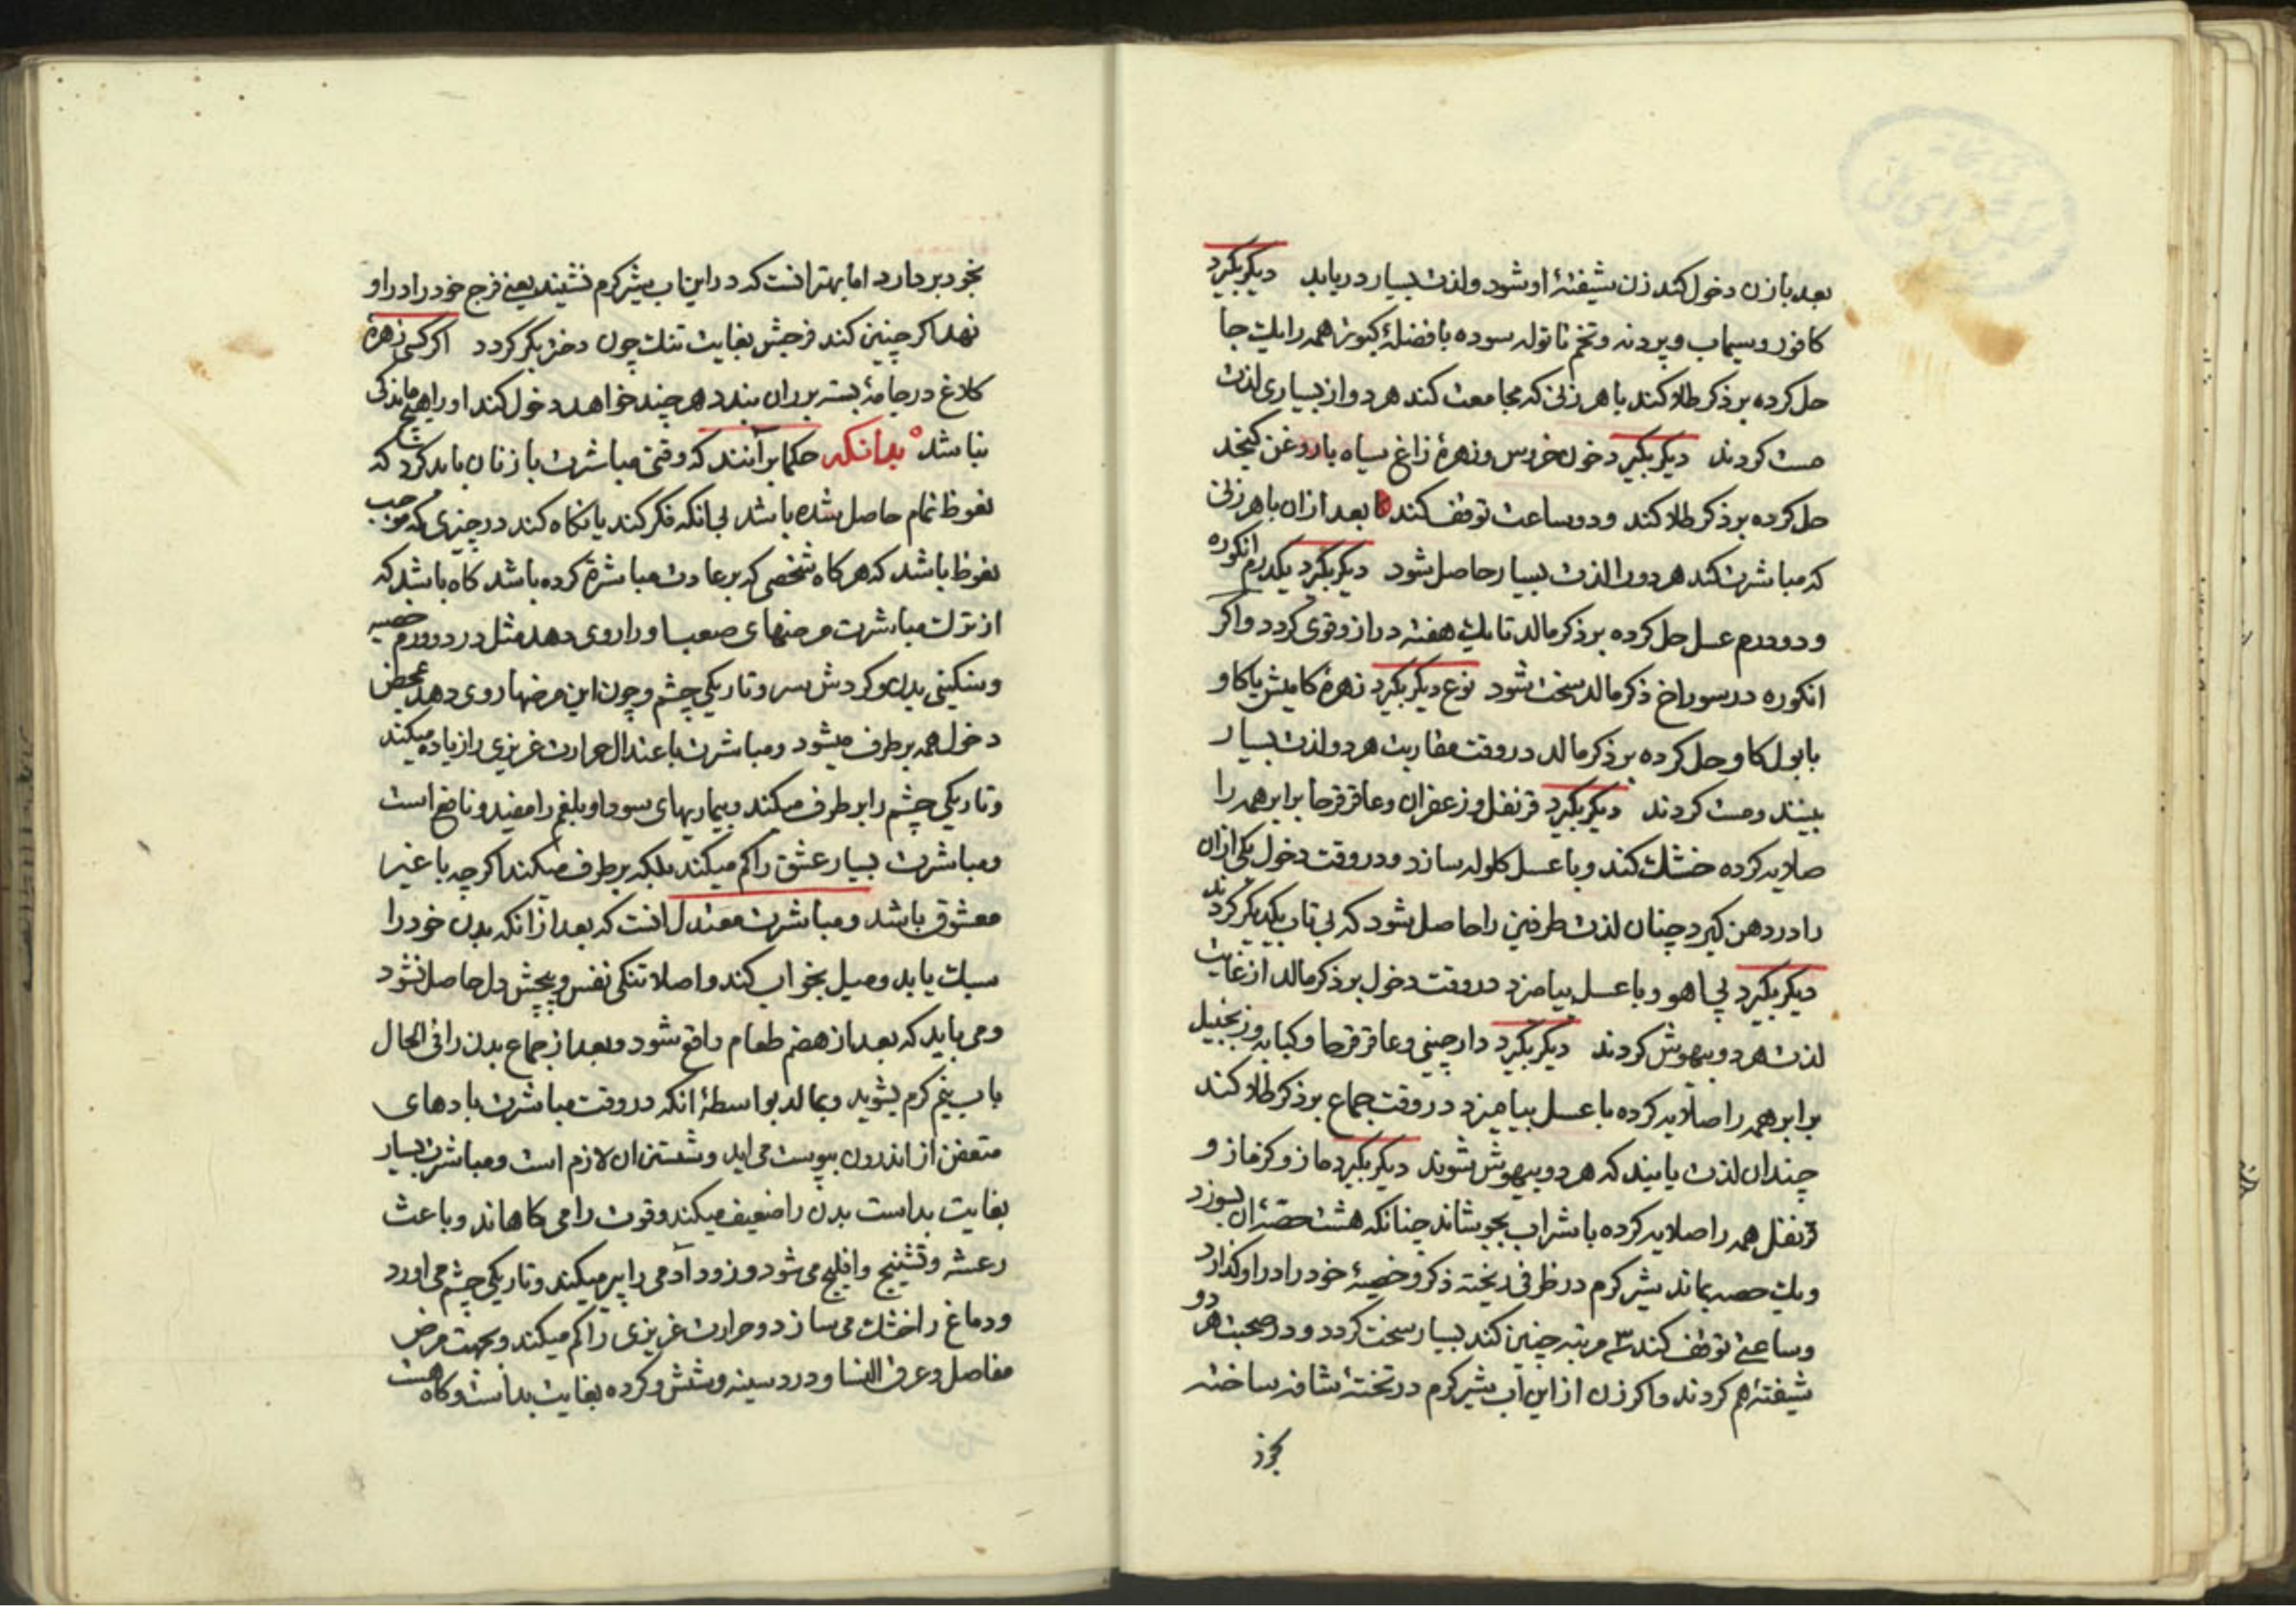 بعد با زن دخول کند زن شیفتهٔ او شود و لذت بسیار دریابد دیکر بکیرد
کافور و سیماب و تخم تاتوله سوده با فضلهٔ کبوتر همه را یک جا
حل کرده بر ذکر طلا کند با هر زنی که مجامعت کند هر دو از بسیاری لذت
مست کردند دیکر بکیرد خون خروس و زهرهٔ زاغ سیاه با روغن کنجد
حل کرده بر ذکر طلا کند و دو ساعت توقف کند بعد از ان با هر زنی
که مباشرت کند هر دو را لذت بسیار حاصل شود دیکر بکیرد یکدرم انکوره
و دو درم عسل حل کرده بر ذکر مالد تا یک هفته دراز و قوی کردد و اکر
انکوره در سوراخ ذکر مالد سخت شود نوع دیکر بکیرد زهرهٔ کامیش یا کاو
با بول کاو حل کرده بر ذکر مالد در وقت مقاربت هر دو لذت بسیار
بینند و مست کردند دیکر بکیرد قرنفل و زعفران و عاقرقرحا برابر همه را
صلایه کرده خشک کند و با عسل کلوله سازد و در وقت دخول یکی از ان
را در دهن کیرد چنان لذت طرفین را حاصل شود که بی تاب یکدیکر کردند
دیکر بکیرد پی اهو و با عسل بیامیزد در وقت دخول بر ذکر مالد از غایت
لذت هر دو بیهوش کردند دیکر بکیرد دارچینی و عاقرقرحا و کبابه و زنجبیل
برابر همه را صلایه کرده با عسل بیامیزد در وقت جماع بر ذکر طلا کند
چندان لذت یابند که هر دو بیهوش شوند دیکر بکیرد مازو و کزمازو
قرنفل همه را صلایه کرده با شراب بجوشاند چنانکه هشت حصهٔ ان بسوزد
و یک حصه بماند شیر کرم در ظرفی ریخته ذکر و خصیهٔ خود را در او کذارد
و ساعتی توقف کند ۳ مرتبه چنین کند بسیار سخت کردد و در صحبت هر دو
شیفتهٔ هم کردند و اکر زن از این آب شیر کرم در شافه ساخته
بخود
بخود بردارد اما بهتر انست که در این اب شیر کرم نشیند یعنی فرج خود را در او
نهد اکر چنین کند فرجش بغایت تنک چون دختر بکر کردد اکر کسی زهرهٔ
کلاغ در جامهٔ بسته بر ران بندد هر چند خواهد دخول کند او را هیچ ماندکی
نباشد بدانکه حکما بر آنند که وقتی مباشرت با زنان باید کرد که
نعوظ تمام حاصل شده باشد بی انکه فکر کند یا نکاه کند در چیزی که موجب
نعوظ باشد که هر کاه شخصی که بر عادت مباشرة کرده باشد کاه باشد که
از ترک مباشرت مرضهای صعب او را روی دهد مثل درد و ورم خصیه
و سنکینی بدن و کردش سر و تاریکی چشم و چون این مرضها روی دهد بمحض
دخول همه بر طرف میشود و مباشرت باعتدال حرارت غریزی را زیاده میکند
و تاریکی چشم را بر طرف میکند و بیماریهای سودا و بلغم را مفید و نافع است
و مباشرت بسیار عشق را کم میکند بلکه بر طرف میکند اکر چه با غیر
معشوق باشد و مباشرت معتدل انست که بعد از انکه بدن خود را
سبک یابد و میل بخواب کند و اصلا تنکی نفس و پیچش دل حاصل نشود
و می باید که بعد از هضم طعام واقع شود و بعد از جماع بدن را فی الحال
باب نیم کرم بشوید و بمالد بواسطهٔ انکه در وقت مباشرت بادهای
متعفن از اندرون بپوست می اید و شستن ان لازم است و مباشرت بسیار
بغایت بد است بدن را ضعیف میکند و قوت را می کاهاند و باعث
رعشه و تشنیج و افلیج می شود و زود آدمی را پیر میکند و تاریکی چشم می اورد
و دماغ را خشک می سازد و حرارت غریزی را کم میکند و بجهت مرض
مفاصل و عرق النسا و درد سینه و شش و کرده بغایت بد است و کاه هست